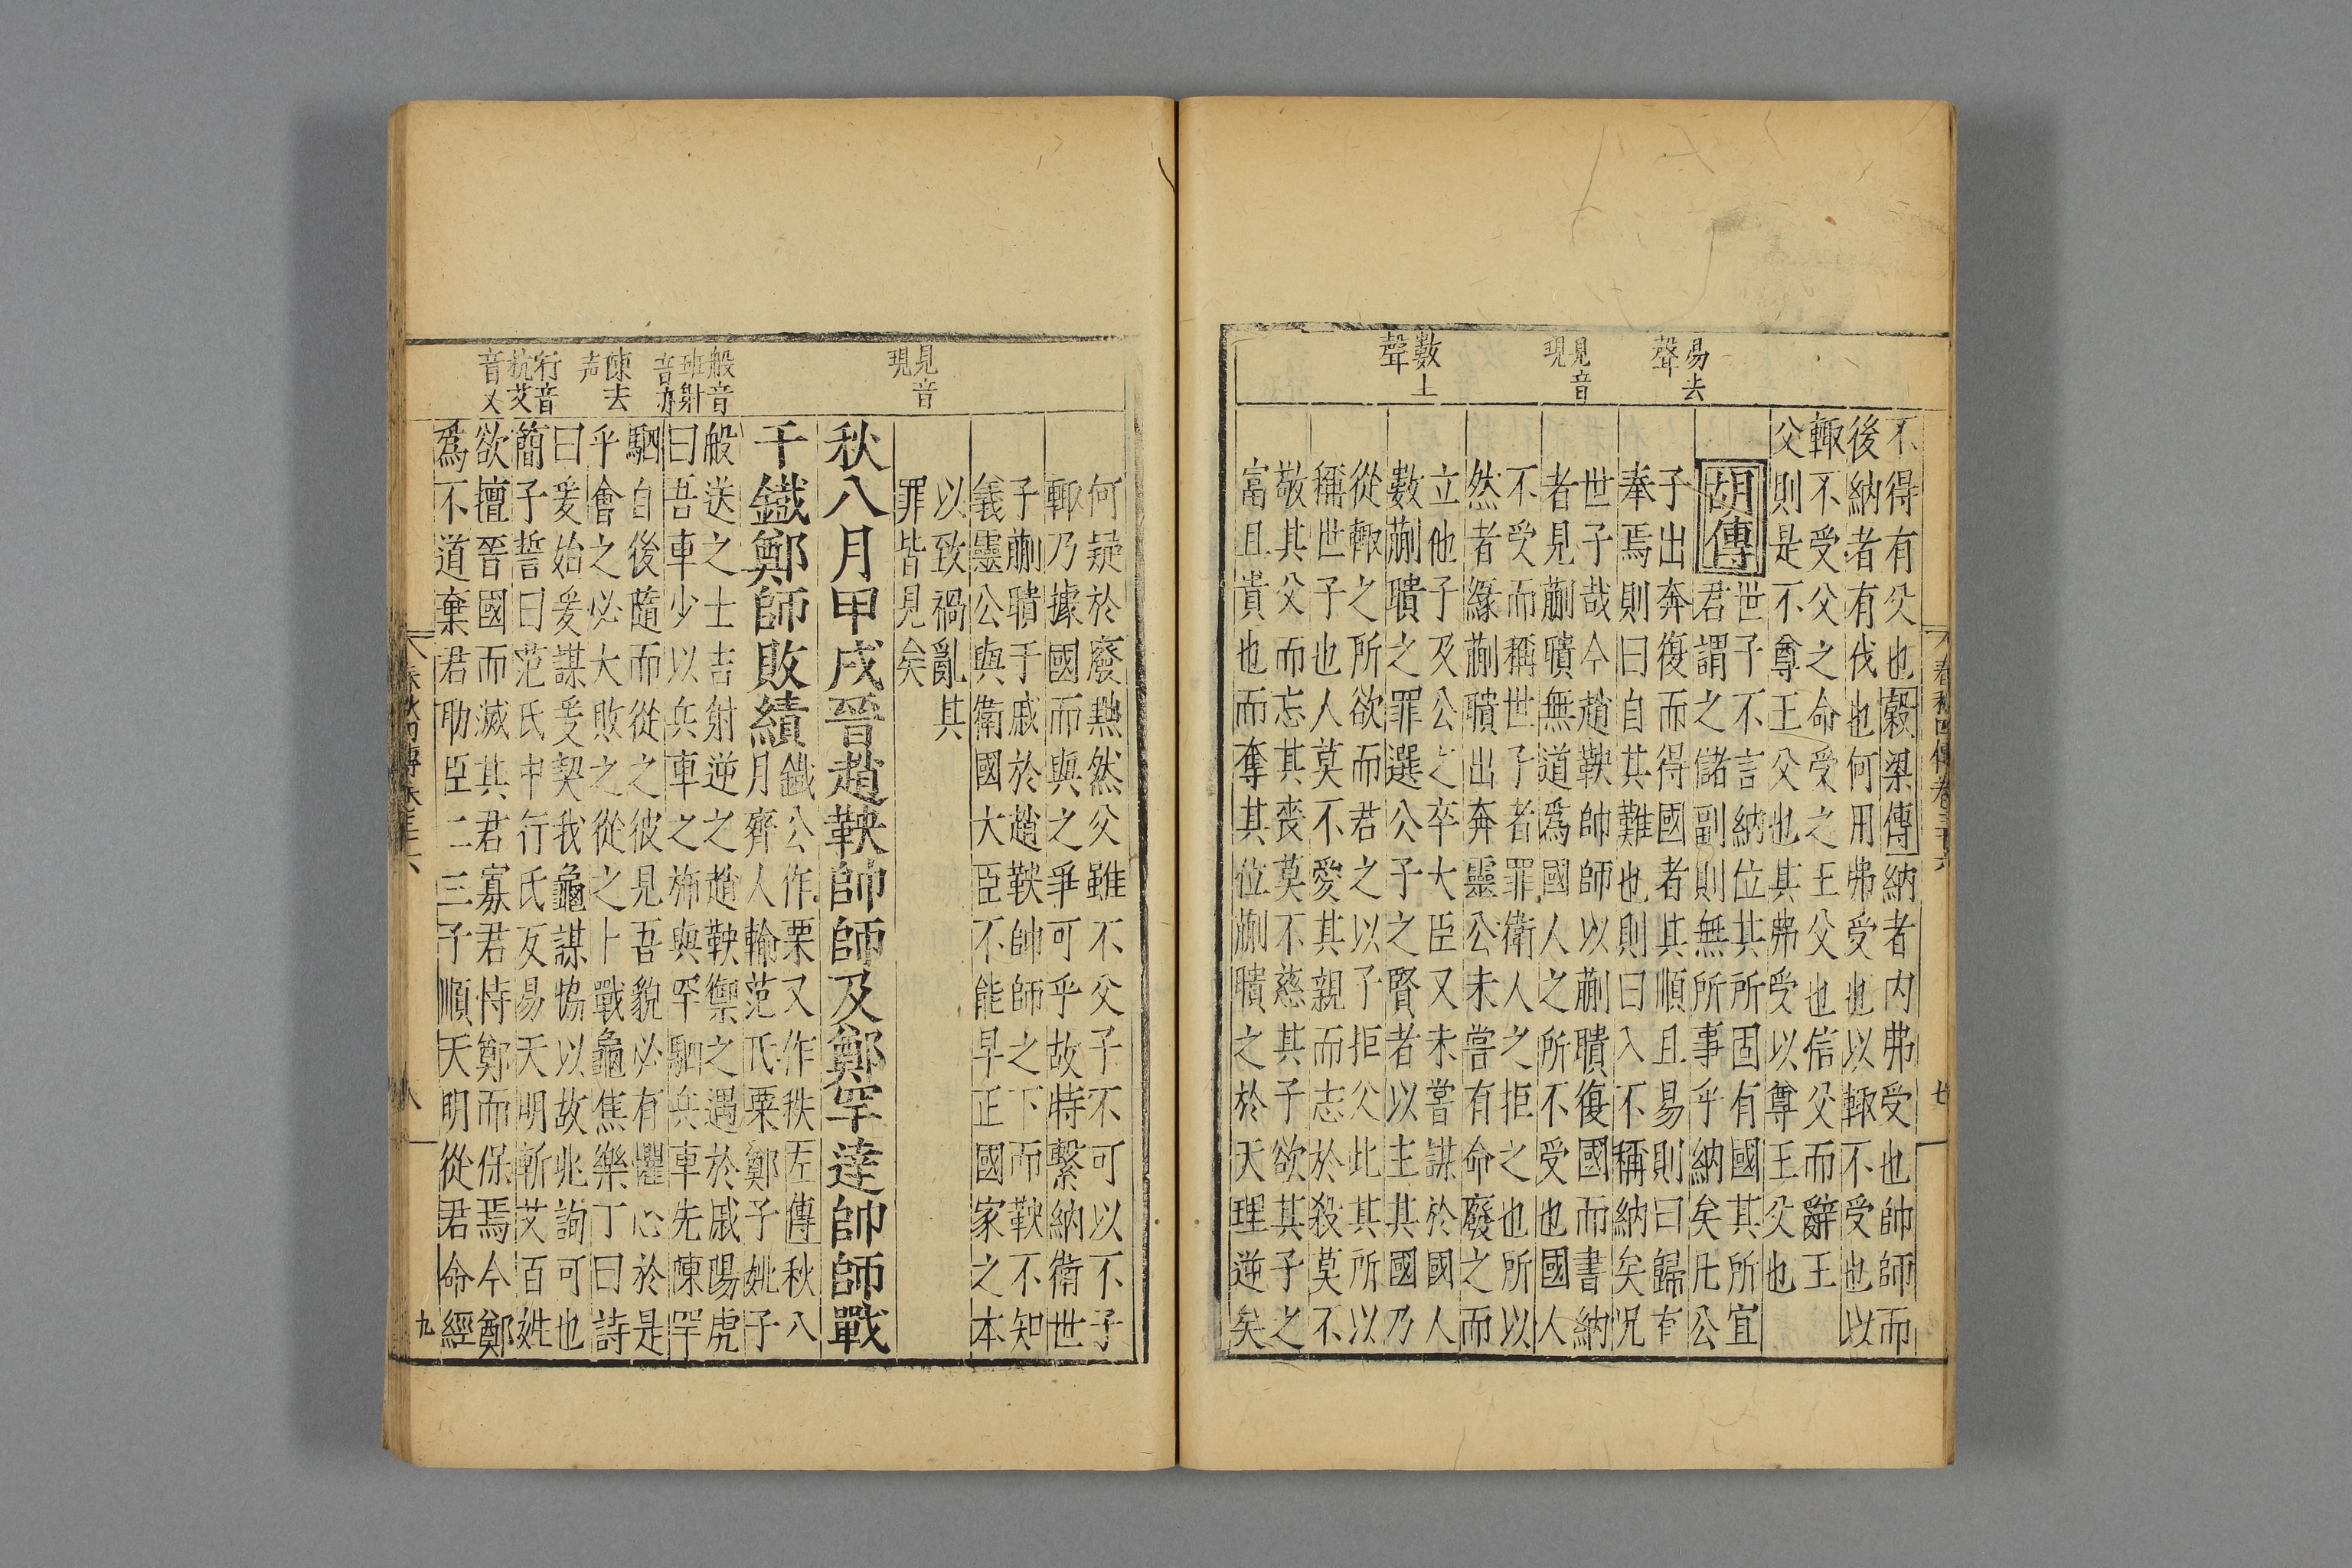 易去
聲
見音
現
數上
聲
不得有父也穀梁傳納者內弗受也帥師而
後納者有伐也何用弗受也以輒不受也以
輒不受父之命受之王父也信父而辭王
父則是不尊王父也其弗受以尊王父也
胡傳
世子不言納位其所固有國其所宜
君謂之儲副則無所事乎納矣凡公
子出奔復而得國者其順且易則曰歸有
奉焉則曰自其難也則曰入不稱納矣况
世子哉今趙鞅帥師以蒯聵復國而書納
者見蒯聵無道爲國人之所不受也國人
不受而稱世子者罪衛人之拒之也所以
然者緣蒯聵出奔靈公未嘗有命廢之而
立他子及公之卒大臣又未嘗謀於國人
數蒯聵之罪選公子之賢者以主其國乃
從輒之所欲而君之以子拒父此其所以
稱世子也人莫不愛其親而志於殺莫不
敬其父而忘其喪莫不慈其子欲其子之
富且貴也而奪其位蒯聵之於天理逆矣
春秋四傳卷三十六
七
見音
現
般音
班射
音亦
陳去
声
行音
杭艾
音乂
何疑於廢黜然父雖不父子不可以不子
輒乃據國而與之爭可乎故特繫納衛世
子蒯聵于戚於趙鞅帥師之下而鞅不知
義靈公與衛國大臣不能早正國家之本
以致禍亂其
罪皆見矣
秋八月甲戌晉趙鞅帥師及鄭罕達帥師戰
于鐵鄭師敗績
鐵公作栗又作秩左傳秋八
月齊人輸范氏粟鄭子姚子
般送之士吉射逆之趙鞅禦之遇於戚陽虎
曰吾車少以兵車之旆與罕駟兵車先陳罕
駟自後隨而從之彼見吾貌必有懼心於是
乎會之必大敗之從之卜戰龜焦樂丁曰詩
曰爰始爰謀爰契我龜謀協以故兆詢可也
簡子誓曰范氏中行氏反易天明斬艾百姓
欲擅晉國而滅其君寡君恃鄭而保焉今鄭
爲不道棄君助臣二三子順天明從君命經
春秋四傳卷三十六
八
九